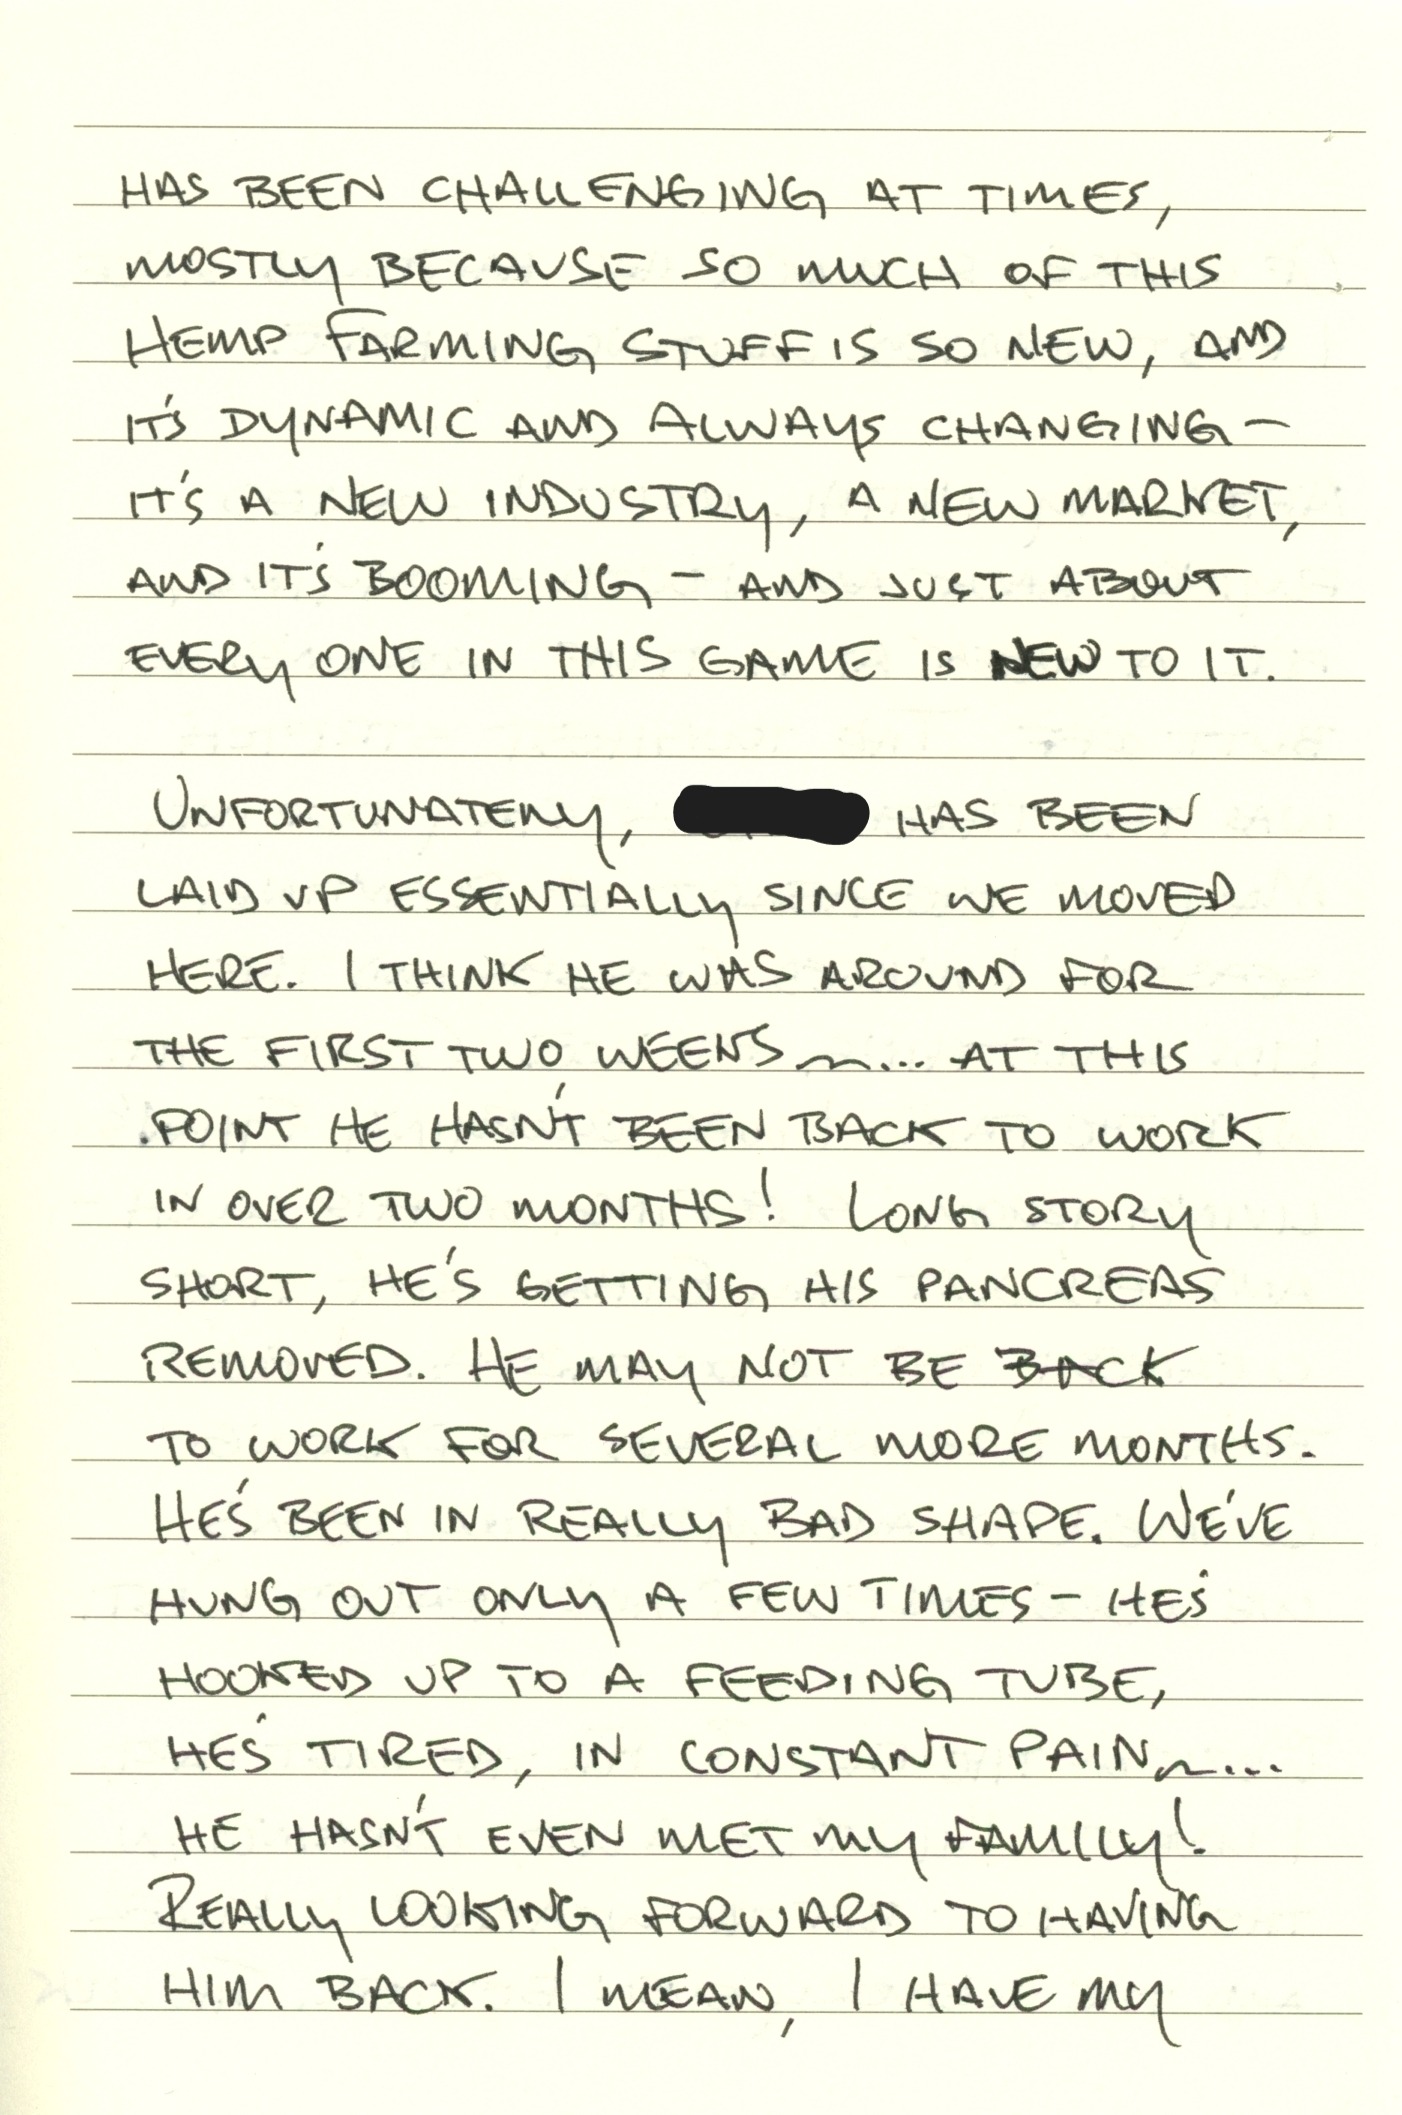 HAS BEEN CHALLENGING AT TIMES,
MOSTLY BECAUSE SO MUCH OF THIS
HEMP FARMING STUFF IS SO NEW, AND
IT'S DYNAMIC AND ALWAYS CHANGING –
IT'S A NEW INDUSTRY, A NEW MARKET,
AND IT'S BOOMING – AND JUST ABOUT
EVERY ONE IN THIS GAME IS NEW TO IT.
UNFORTUNATELY, HAS BEEN
LAID UP ESSENTIALLY SINCE WE MOVED
HERE. I THINK HE WAS AROUND FOR
THE FIRST TWO WEEKS ~... AT THIS
POINT HE HASN'T BEEN BACK TO WORK
IN OVER TWO MONTHS! LONG STORY
SHORT, HE'S GETTING HIS PANCREAS
REMOVED. HE MAY NOT BE BACK
TO WORK FOR SEVERAL MORE MONTHS.
HE'S BEEN IN REALLY BAD SHAPE. WE'VE
HUNG OUT ONLY A FEW TIMES – HE'S
HOOKED UP TO A FEEDING TUBE,
HE'S TIRED, IN CONSTANT PAIN ~...
HE HASN'T EVEN MET MY FAMILY!
REALLY LOOKING FORWARD TO HAVING
HIM BACK. I MEAN, I HAVE MY